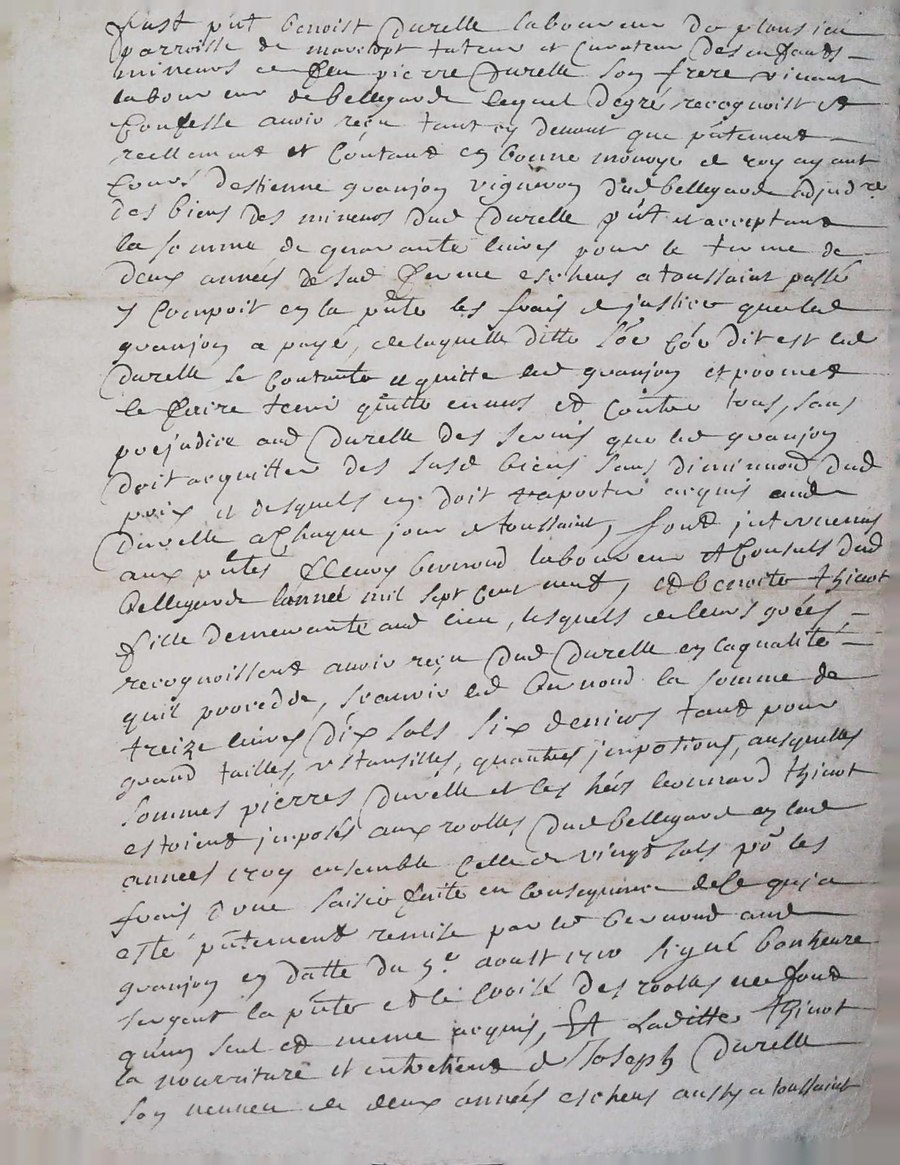 fust pñt benoist Durelle laboureur de
parroisse de tuteur et curateur des enfants
mineurs de feu pierre Durelle son frere vivant
laboureur de bellegarde lequel degré recognoist et
Confesse avoir reçu tant cy devant que pñtement
reellement et Contant en bonne monoye de roy ayant
Cours destienne granjon vigneron dud bellegarde adjudre
des biens des mineurs dud Durelle pñt et acceptant
la somme de quarante livres pour le terme de
deux années de sad ferme escheus a toussaint passé
y Compoit en la pñte les frais de justice que led
granjon a payé, de laquelle ditte dit est led
Durelle se Contante et quitte led granjon et promet
le faire tenir quitte envers et Contre tous, sans
prejudice aud Durelle des servis que led granjon
doit acquitter des susd biens sans diminuon dud
prix et desquels en doit raporter acquis aud
Durelle a Chaque jour de toussaint, sont intervenus
aux pñtes fleury bernond laboureur et Consuls dud
bellegarde lannée mil sept cent neuf, et benoite thinot
fille demeurante aud lieu, lesquels de leurs grées
recognoissent avoir reçu dud Durelle en laqualité
quil procedde, scavoir led bernond la somme de
treize livres dix sols six deniers tant pour
grand tailles, ustansilles, quautres impotions, ausquelles
sommes pierres Durelle et les hers leonnard thinot
estoient imposés aux roolles dud bellegarde en lad
années 1709 ensemble celle de vingt sols pr les
frais dune saisie faite en Consequance de ce qui a
esté pñtement remise par led bernond aud
granjon en datte du 5e aoust 1710 signé bonheure
sergent la pñte et le des roolles ne font
quun seul et meme acquis, Et Laditte thinot
la nourriture et entretient de Joseph Durelle
son neuveu de deux années escheus aussy a toussaint